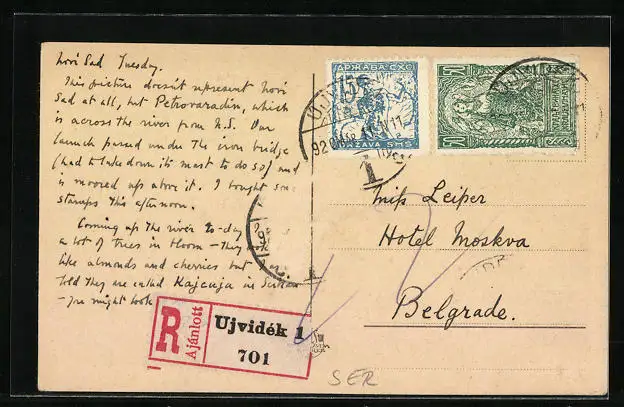 Novi Sad Tuesday.
This picture doesn't represent Novi
Sad at all, but Petrovaradin, which
is across the river from N.S. Our
launch passed under the iron bridge
(had to take down its mast to do so) and
is moored up above it. I bought some
stamps this afternoon.
Coming up the river to-day
a lot of trees in bloom – they look
like almonds and cherries but
told they are called Kajcuja in
- you might look
R
Ajánlott
Ujvidék 1
701
ДРЖАВА СХС
15
DRŽAVA SHS
50
50
UJVI
920
11
1
Miss Leiper
Hotel Moskva
Belgrade.
SER